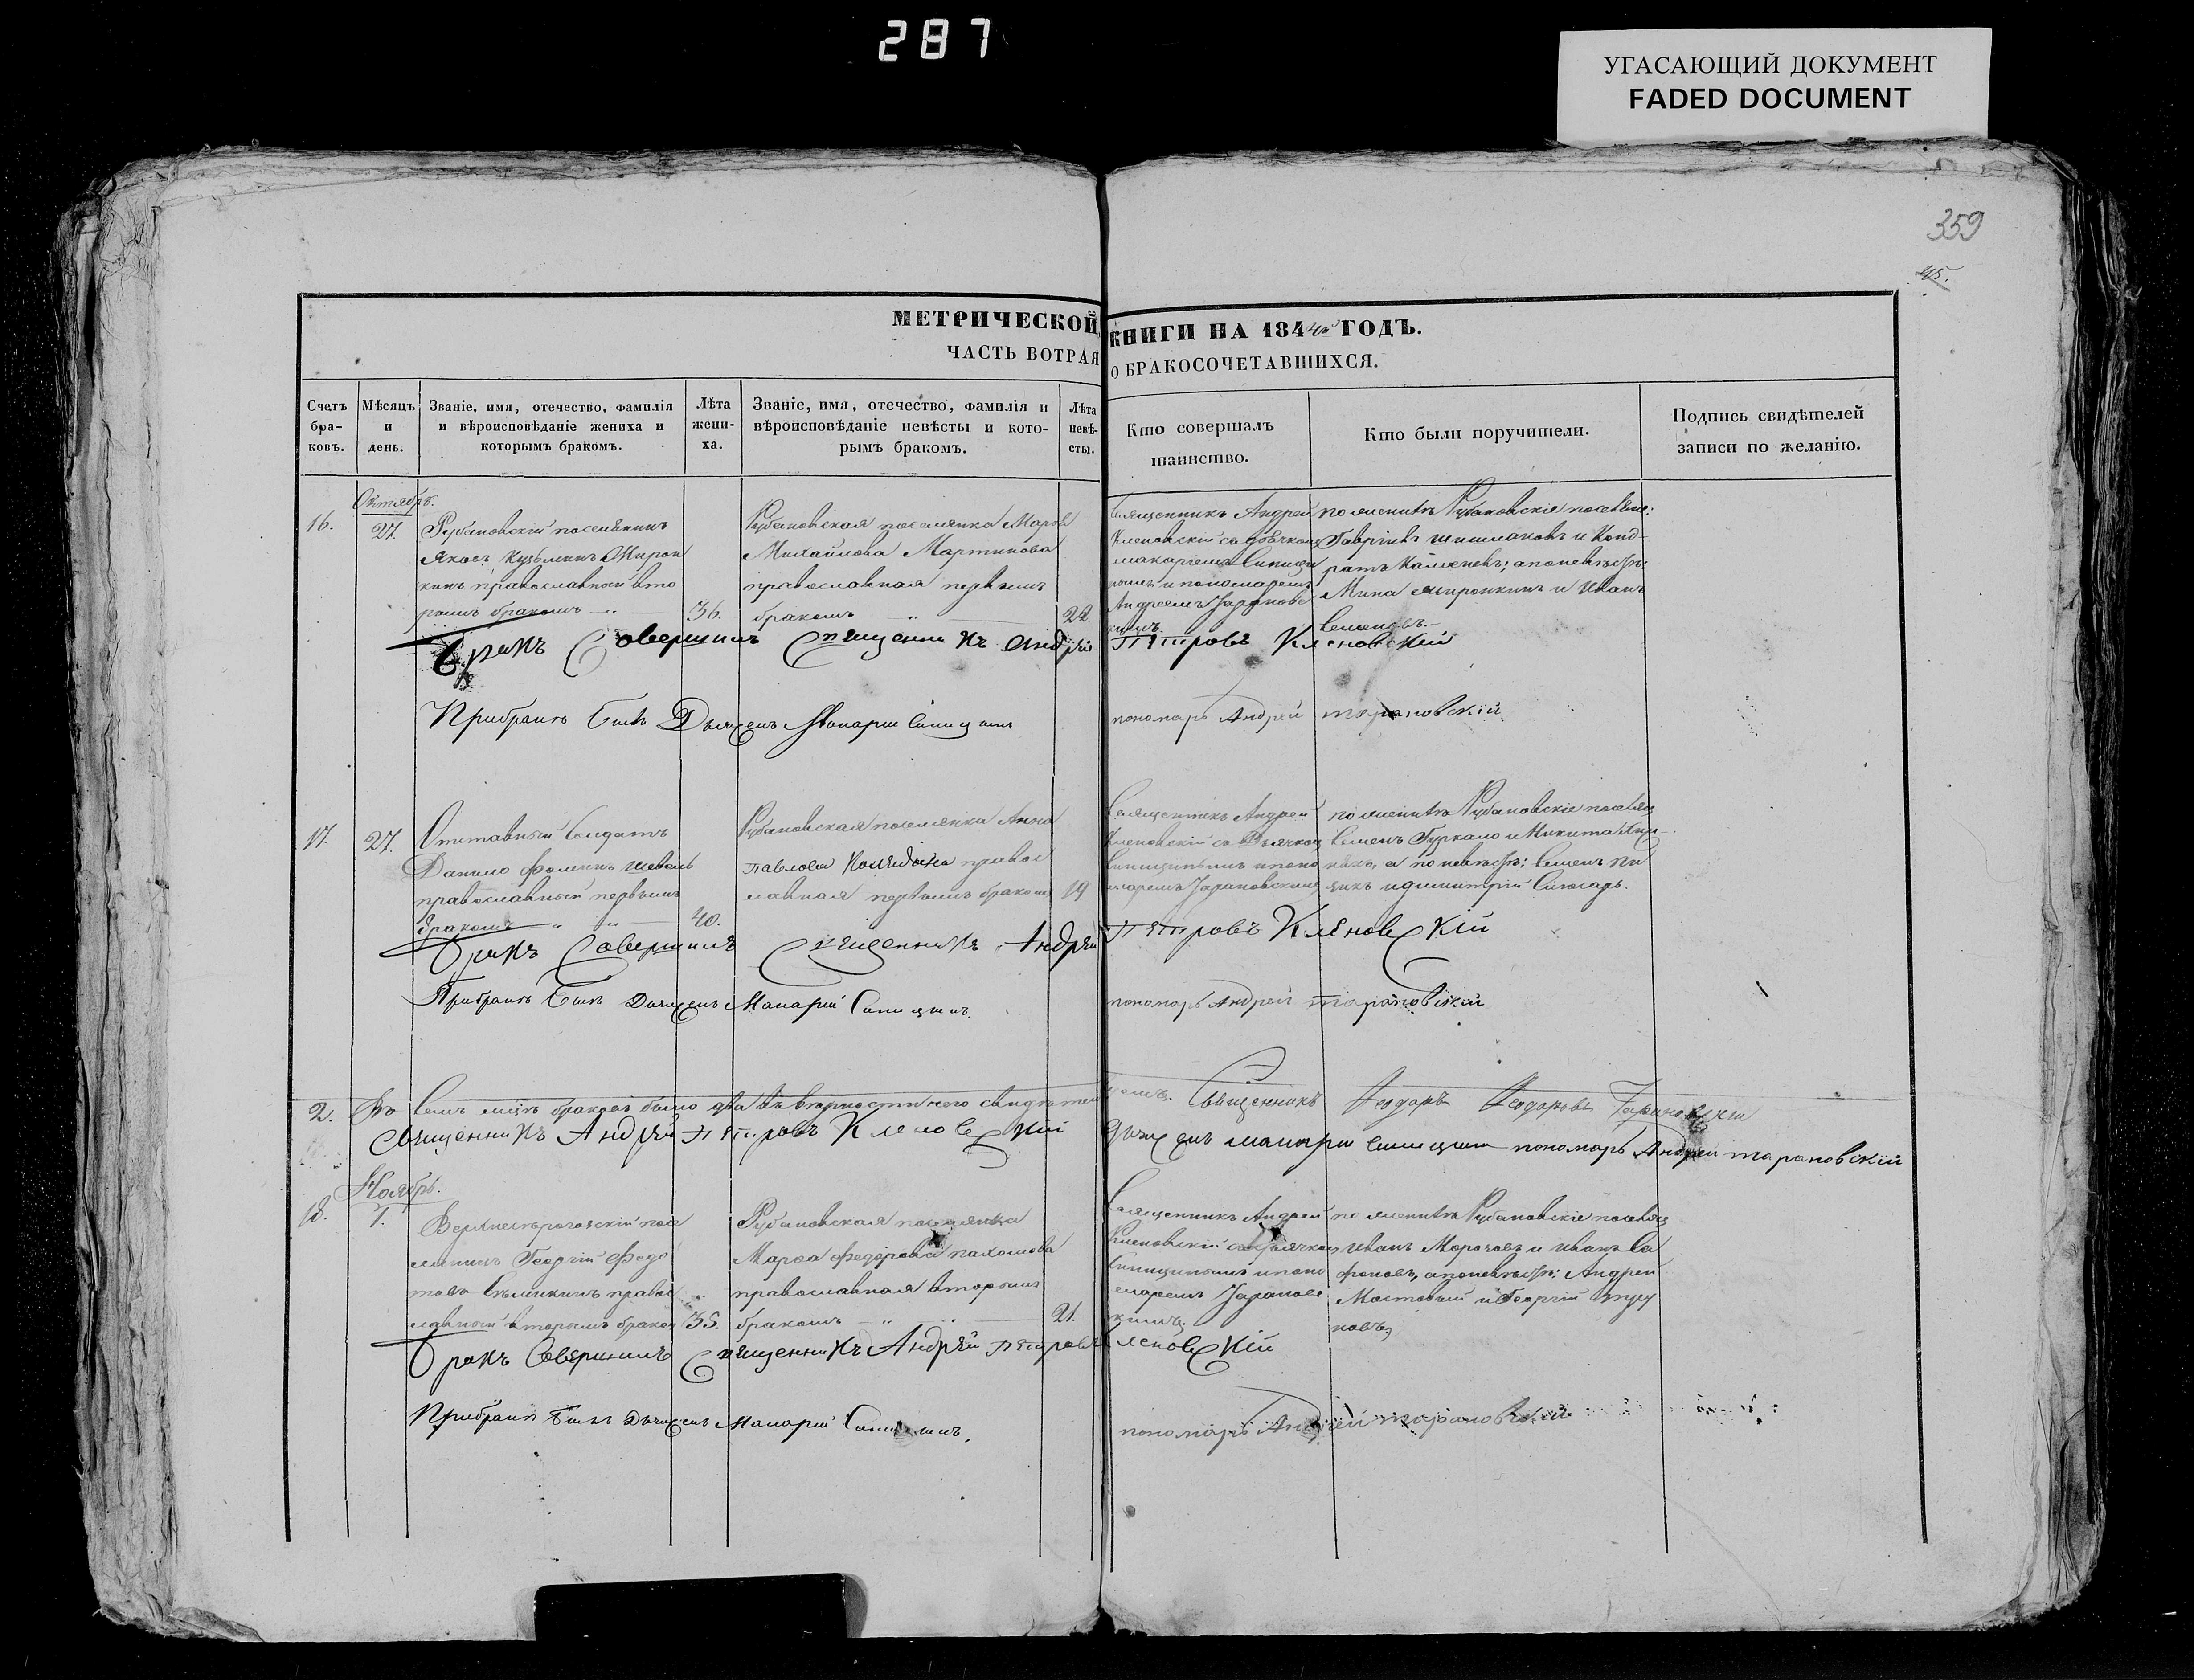 287
УГАСАЮЩИЙ ДОКУМЕНТ
FADED DOCUMENT
359
45.
МЕТРИЧЕСКОЙ КНИГИ НА 1844й ГОДЪ.
ЧАСТЬ ВОТРАЯ О БРАКОСОЧЕТАВШИХСЯ.
Счетъ бра-ковъ.
Мѣсяцъ и день.
Званіе, имя, отечество, фамилія и вѣроисповѣданіе жениха и которымъ бракомъ.
Лѣта жени-ха.
Званіе, имя, отечество, фамилія и вѣроисповѣданіе невѣсты и кото-рымъ бракомъ.
Лѣта невѣ-сты.
Кто совершалъ таинство.
Кто были поручители.
Подпись свидѣтелей записи по желанію.
Октябрь.
16.
27.
Рубановскій поселянинъ
Яковъ Кузьминъ Мирон
кинъ православный вто
рымъ бракомъ
36.
Рубановская поселянка Марѳа
Михайлова Мартинова
православная первымъ
бракомъ
22
Священникъ Андрей
Кленовскій съ дьячкомъ
Макаріемъ Синицы
нымъ и пономаремъ
Андреемъ Таранов
кимъ.
по женихѣ Рубановскіе поселяне:
Гавріилъ Шишмаковъ и Конд-
ратъ Каменевъ; а по невѣстѣ:
Мина Миронкинъ и Иванъ
Семеновъ.
Бракъ Совершилъ Священникъ Андрей Петровъ Кленовскій
При бракѣ былъ Дьячекъ Макарій Синицынъ
пономарь Андрей Тарановскій
17.
27.
Отставный Солдатъ
Данило Фоминъ Шевель
православный первымъ
бракомъ
40.
Рубановская поселянка Анна
Павлова православ
славная первымъ бракомъ
19
Священникъ Андрей
Кленовскій съ Дьячкомъ
Синицынымъ и поно
маремъ Тарановскимъ
по женихѣ Рубановскіе поселяне
Семенъ Гуркало и Никита
а по невѣстѣ: Семенъ
и Димитрій Слюсарь.
Бракъ Совершилъ Священникъ Андрей Петровъ Кленовскій
При бракѣ былъ Дьячекъ Макарій Синицынъ.
пономарь Андрей Тарановскій
2.
Въ семъ мцѣ браковъ было два въ вѣрности чего свидѣтель
Священникъ Ѳеодоръ Ѳеодоровъ
Священникъ Андрей Петровъ Кленовскій
дьячекъ Макарій Синицынъ пономарь Андрей Тарановскій
Ноябрь.
18.
7.
Верхнерогачскій посе
лянинъ Георгій Федо
товъ православ
славный вторымъ браком
35.
Рубановская поселянка
Марѳа Федорова Пахомова
православная вторымъ
бракомъ
21.
Священникъ Андрей
Кленовскій съ дьячкомъ
Синицынымъ и поно
маремъ Таранов
кимъ.
по женихѣ Рубановскіе поселяне
Иванъ Морозовъ и Иванъ Са
фоновъ, а по невѣстѣ: Андрей
Мостовый и Георгій
Бракъ Совершилъ Священникъ Андрей Петровъ Кленовскій
При бракѣ былъ Дьячекъ Макарій Синицынъ.
пономарь Андрей Тарановскій